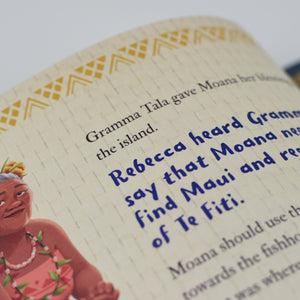 Gramma Tala gave Moana her
the island.
Rebecca heard Gramm
say that Moana
find Maui and
of Te Fiti.
Moana should use
towards the
was where